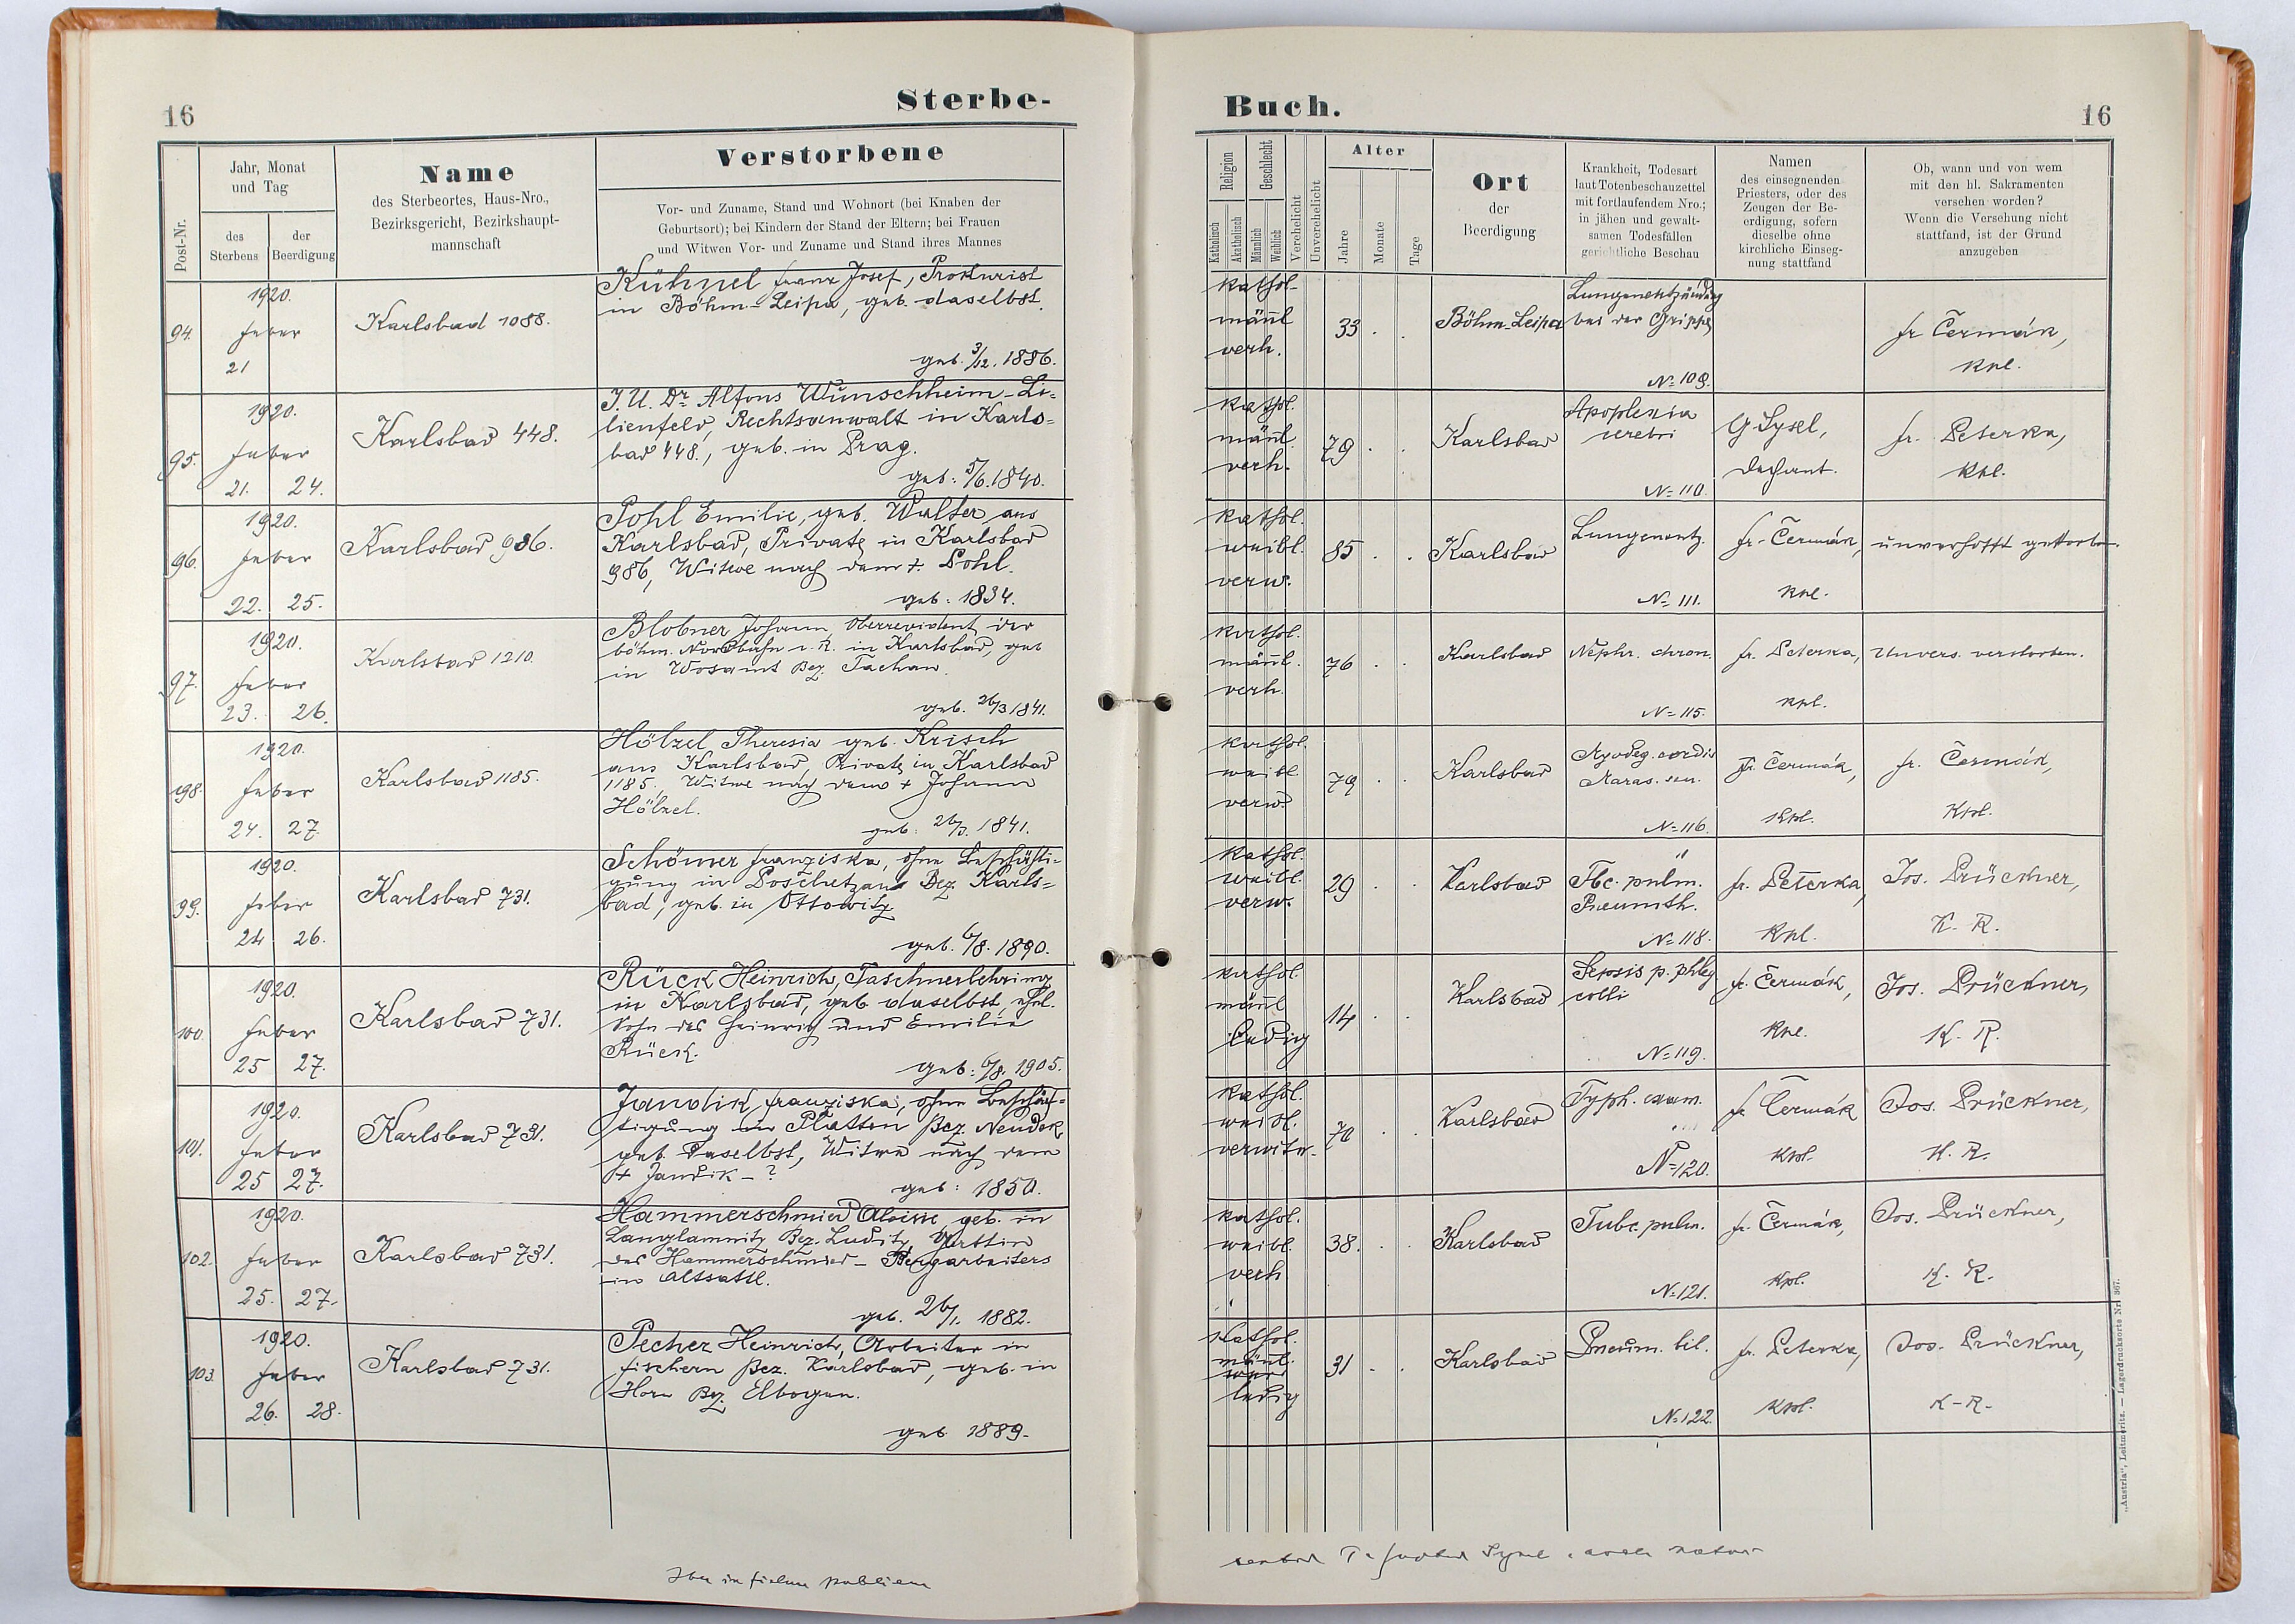 16
Sterbe-
Buch.
16
Post-Nr.
Jahr, Monat
und Tag
des
Sterbens
der
Beerdigung
Name
des Sterbeortes, Haus-Nro.,
Bezirksgericht, Bezirkshaupt-
mannschaft
Verstorbene
Vor- und Zuname, Stand und Wohnort (bei Knaben der
Geburtsort); bei Kindern der Stand der Eltern; bei Frauen
und Witwen Vor- und Zuname und Stand ihres Mannes
Religion
Katholisch
Akatholisch
Geschlecht
Männlich
Weiblich
Verehelicht
Unverehelicht
Alter
Jahre
Monate
Tage
Ort
der
Beerdigung
Krankheit, Todesart
laut Totenbeschauzettel
mit fortlaufendem Nro.;
in jähen und gewalt-
samen Todesfällen
gerichtliche Beschau
Namen
des einsegnenden
Priesters, oder des
Zeugen der Be-
erdigung, sofern
dieselbe ohne
kirchliche Einseg-
nung stattfand
Ob, wann und von wem
mit den hl. Sakramenten
versehen worden?
Wenn die Versehung nicht
stattfand, ist der Grund
anzugeben
94.
1920.
Feber
21
Karlsbad 1088.
Kühnel Franz Josef, Prokurist
in Böhm-Leipa, geb. daselbst.
geb. 3/12. 1886.
kathol.
männl
verh.
33
Böhm-Leipa
Lungenentzündung
bei der Grippe
No 109.
Fr Čermák,
Kpl.
95.
1920.
Feber
21. 24.
Karlsbad 448.
J.U. Dr Alfons Wunschheim-Li-
lienfeld, Rechtsanwalt in Karls-
bad 448., geb. in Prag.
geb: 5/6.1840.
kathol.
männl.
verh.
79
Karlsbad
Apoplexia
cerebri
No 110.
G Sysel,
Dechant.
Fr. Peterka,
Kpl.
96.
1920.
Feber
22. 25.
Karlsbad 986.
Pohl Emilie, geb. Walter aus
Karlsbad, Private in Karlsbad
986, Witwe nach dem +. Pohl.
geb: 1834.
kathol.
weibl.
verw.
85
Karlsbad
Lungenentz.
No 111.
Fr. Čermák,
Kpl.
unverhofft gestorben.
97.
1920.
Feber
23. 26.
Karlsbad 1210.
Blobner Johann, Oberrevident der
böhm. Nordbahn i. R. in Karlsbad, geb
in Wosant Bez. Tachau.
geb. 26/3 1841.
kathol.
männl.
verh.
76
Karlsbad
Nephr. chron.
No 115.
Fr. Peterka,
Kpl.
Unvers. verstorben.
98.
1920.
Feber
24. 27.
Karlsbad 1185.
Hölzel Theresia geb. Krisch
aus Karlsbad, Private in Karlsbad
1185, Witwe nach dem + Johann
Hölzel.
geb: 1841.
kathol.
weibl.
verw
79
Karlsbad
Myodeg. cordis
Maras. sen.
No 116.
Fr. Čermák,
Kpl.
Fr. Čermák,
Kpl.
99.
1920.
Feber
24 26.
Karlsbad 731.
Schömer Franziska, ohne Beschäfti-
gung in Poschetzau Bez. Karls-
bad, geb. in Ottowitz
geb. 6/8. 1890.
kathol.
weibl.
verw.
29
Karlsbad
Tbc. pulm.
Pneumth.
No 118.
Fr. Peterka,
Kpl.
Jos. Prückner,
K. R.
100.
1920.
Feber
25 27.
Karlsbad 731.
Rück Heinrich, Taschnerlehrling
in Karlsbad, geb. daselbst, ehel.
Sohn des Heinrich und Emilie
Rück.
geb: 6/8. 1905.
kathol.
männl
ledig
14
Karlsbad
Sepsis p. phleg
colli
No 119.
Fr. Čermák,
Kpl.
Jos. Prückner,
K. R.
101.
1920.
Feber
25 27.
Karlsbad 731.
Jandik Franziska, ohne Beschäf-
tigung in Platten Bez. Neudek
geb. daselbst, Witwe nach dem
+ Jandik - ?
geb: 1850.
kathol.
weibl.
verwitw.
70
Karlsbad
Typh. exam.
No 120.
Fr Čermák
Kpl.
Jos. Prückner,
K. R.
102.
1920.
Feber
25. 27.
Karlsbad 731.
Hammerschmied Aloisie, geb. in
Langlamnitz Bez. Luditz, Gattin
des Hammerschmied - Bergarbeiters
in Altsattl.
geb. 26/1. 1882.
kathol.
weibl.
verh
38.
Karlsbad
Tubc. pulm.
No 121.
Fr. Čermák,
Kpl.
Jos. Prückner,
K. R.
103.
1920.
Feber
26. 28.
Karlsbad 731.
Pecher Heinrich, Arbeiter in
Fischern Bez. Karlsbad, geb. in
Horn Bez. Elbogen.
geb 1889.
kathol.
männl.
ledig
31
Karlsbad
Pneum. bil.
No 122.
Fr. Peterka,
Kpl.
Jos. Prückner,
K-R-
„Austria", Leitmeritz. — Lagerdrucksorte Nr. 367.